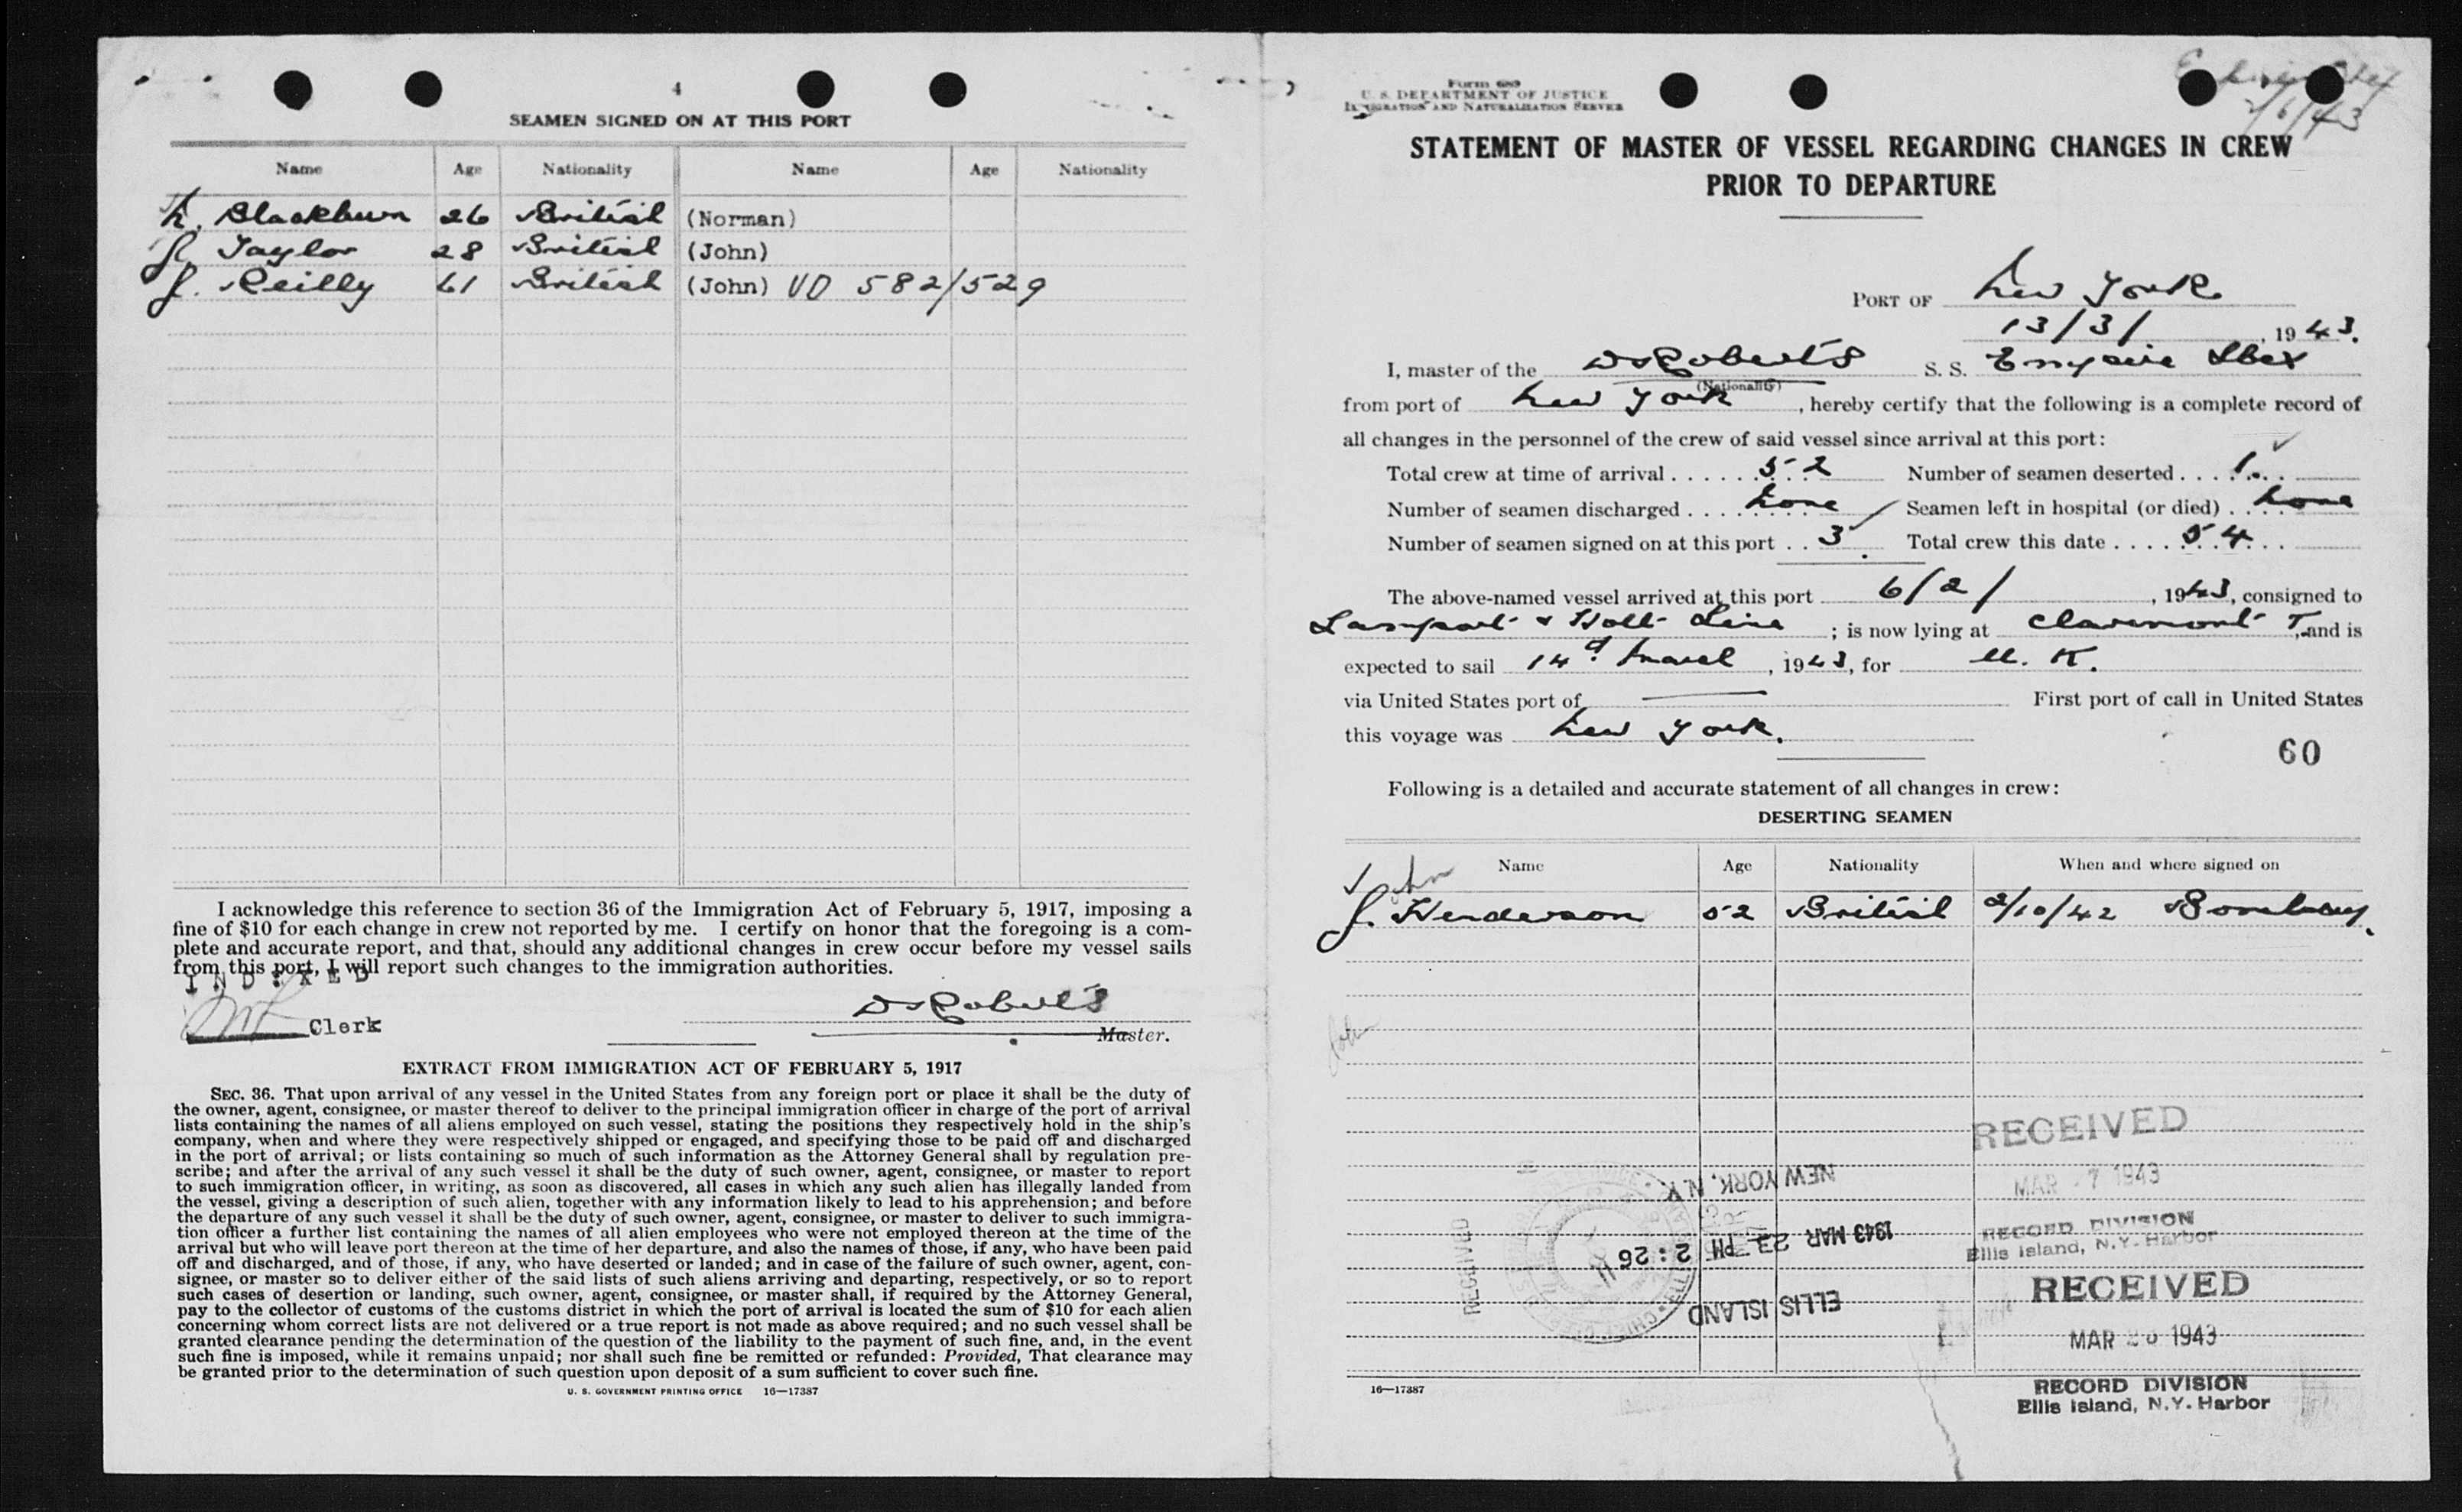 4
SEAMEN SIGNED ON AT THIS PORT
Name Age Nationality Name Age Nationality
N. Blackburn 26 British (Norman)
J. Taylor 28 British (John)
J. Reilly 61 British (John) VD 582/529
I acknowledge this reference to section 36 of the Immigration Act of February 5, 1917, imposing a
fine of $10 for each change in crew not reported by me. I certify on honor that the foregoing is a com-
plete and accurate report, and that, should any additional changes in crew occur before my vessel sails
from this port, I will report such changes to the immigration authorities.
INDEXED
Clerk
DsRoberts
Master.
EXTRACT FROM IMMIGRATION ACT OF FEBRUARY 5, 1917
SEC. 36. That upon arrival of any vessel in the United States from any foreign port or place it shall be the duty of
the owner, agent, consignee, or master thereof to deliver to the principal immigration officer in charge of the port of arrival
lists containing the names of all aliens employed on such vessel, stating the positions they respectively hold in the ship's
company, when and where they were respectively shipped or engaged, and specifying those to be paid off and discharged
in the port of arrival; or lists containing so much of such information as the Attorney General shall by regulation pre-
scribe; and after the arrival of any such vessel it shall be the duty of such owner, agent, consignee, or master to report
to such immigration officer, in writing, as soon as discovered, all cases in which any such alien has illegally landed from
the vessel, giving a description of such alien, together with any information likely to lead to his apprehension; and before
the departure of any such vessel it shall be the duty of such owner, agent, consignee, or master to deliver to such immigra-
tion officer a further list containing the names of all alien employees who were not employed thereon at the time of the
arrival but who will leave port thereon at the time of her departure, and also the names of those, if any, who have been paid
off and discharged, and of those, if any, who have deserted or landed; and in case of the failure of such owner, agent, con-
signee, or master so to deliver either of the said lists of such aliens arriving and departing, respectively, or so to report
such cases of desertion or landing, such owner, agent, consignee, or master shall, if required by the Attorney General,
pay to the collector of customs of the customs district in which the port of arrival is located the sum of $10 for each alien
concerning whom correct lists are not delivered or a true report is not made as above required; and no such vessel shall be
granted clearance pending the determination of the question of the liability to the payment of such fine, and, in the event
such fine is imposed, while it remains unpaid; nor shall such fine be remitted or refunded: Provided, That clearance may
be granted prior to the determination of such question upon deposit of a sum sufficient to cover such fine.
U. S. GOVERNMENT PRINTING OFFICE 16—17387
Form 689
U. S. DEPARTMENT OF JUSTICE
IMMIGRATION AND NATURALIZATION SERVICE
2/6/43
STATEMENT OF MASTER OF VESSEL REGARDING CHANGES IN CREW
PRIOR TO DEPARTURE
PORT OF New York
13/3/, 1943.
I, master of the DsRoberts S. S. Empire Ibex
(Nationality)
from port of New York, hereby certify that the following is a complete record of
all changes in the personnel of the crew of said vessel since arrival at this port:
Total crew at time of arrival . . . . . . 52 Number of seamen deserted . . . . 1.
Number of seamen discharged . . . . None Seamen left in hospital (or died) . . None
Number of seamen signed on at this port . . 3 Total crew this date . . . . 54
The above-named vessel arrived at this port 6/2/, 1943, consigned to
Lamport & Holt Line; is now lying at Claremont T, and is
expected to sail 14th March, 1943, for U. K.
via United States port of — First port of call in United States
this voyage was New York.
60
Following is a detailed and accurate statement of all changes in crew:
DESERTING SEAMEN
Name Age Nationality When and where signed on
John
J. Henderson 52 British 2/10/42 Bombay.
John
RECEIVED
MAR 7 1943
RECORD DIVISION
Ellis Island, N.Y. Harbor
RECEIVED
NEW YORK, N.Y.
1943 MAR 22 PM 2:26
ELLIS ISLAND
RECEIVED
MAR 26 1943
RECORD DIVISION
Ellis Island, N.Y. Harbor
16—17387